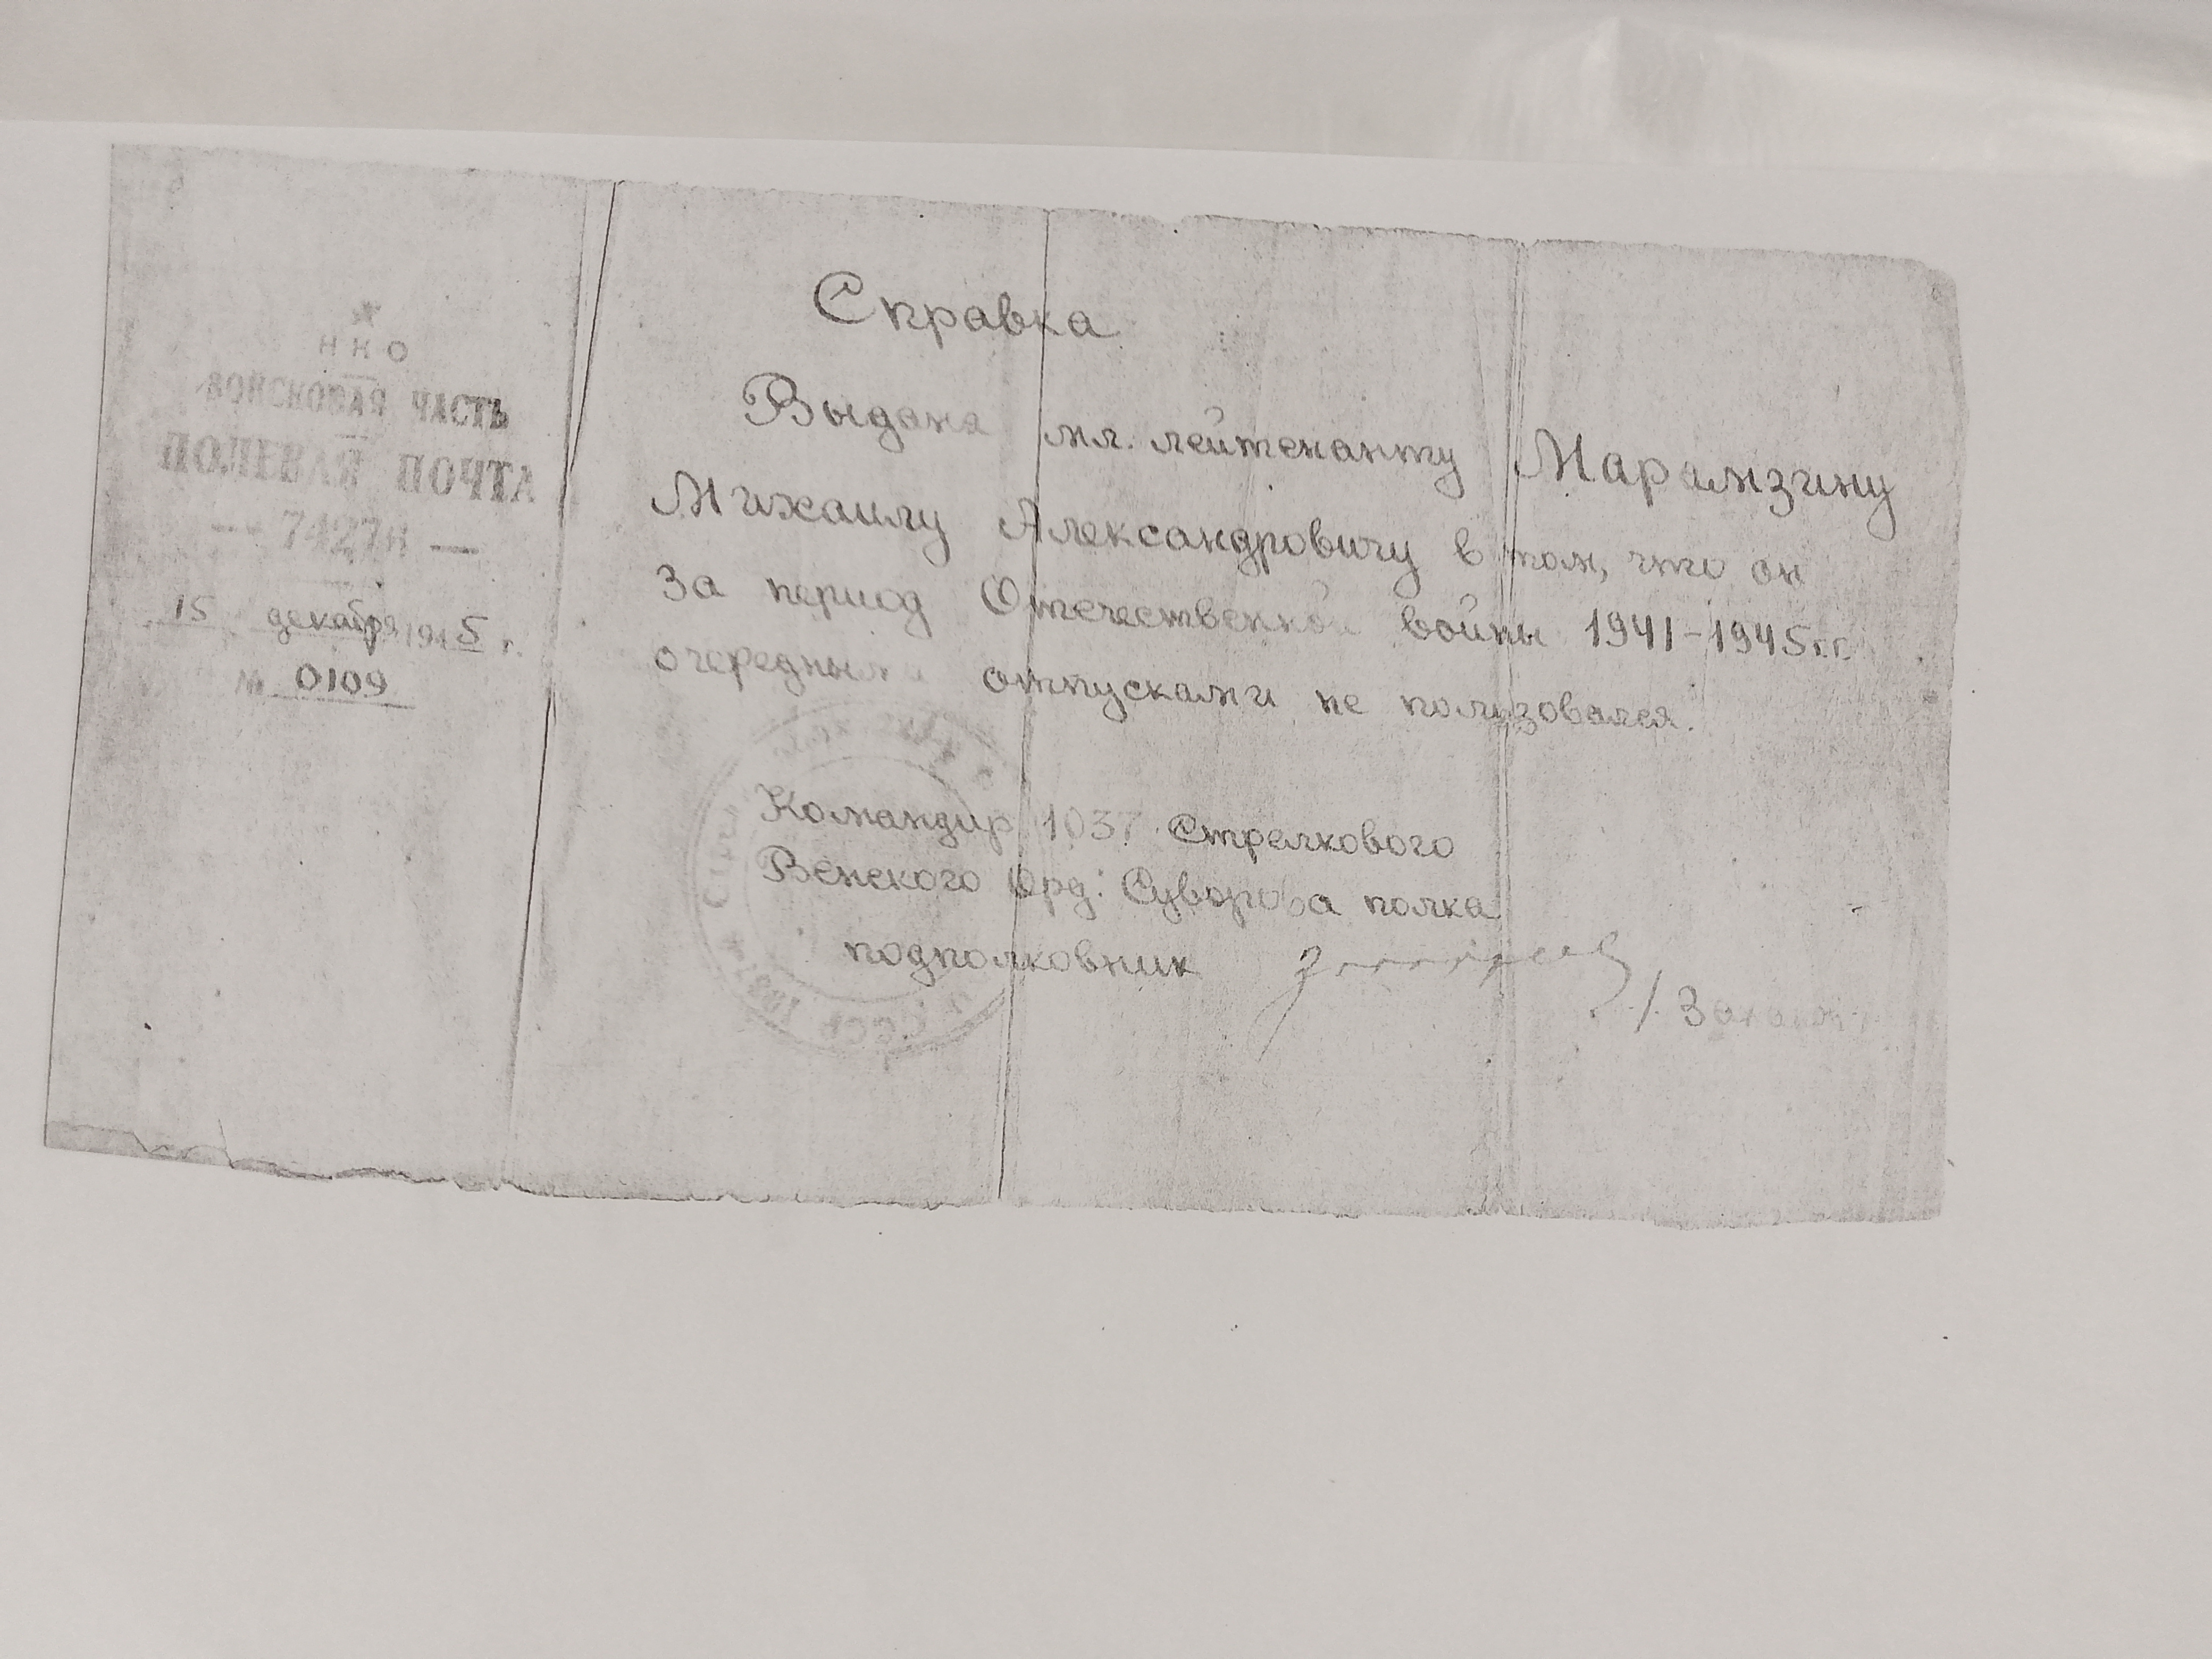 НКО
ВОЙСКОВАЯ ЧАСТЬ
ПОЛЕВАЯ ПОЧТА
15 декабря 1945 г.
№ 0109
Справка
Выдана мл. лейтенанту Марамзину
Михаилу Александровичу в том, что он
за период Отечественной войны 1941-1945 г.г.
очередными отпусками не пользовался.
Командир 1037 Стрелкового
Венского Орд: Суворова полка
подполковник